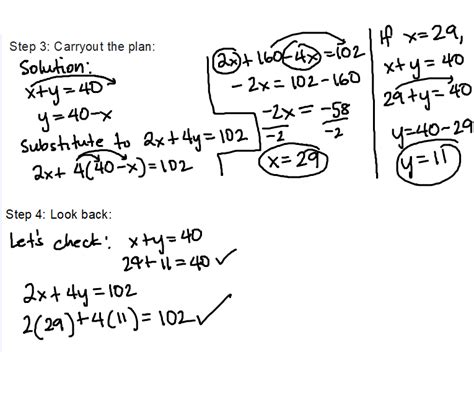 Step 3: Carryout the plan:
Solution:
x+y=40
y=40-x
Substitute to 2x+4y=102
2x+4(40-x)=102
2x+160-4x=102
-2x=102-160
-2x = -58
-2 -2
x=29
If x=29,
x+y=40
29+y=40
y=40-29
y=11
Step 4: Look back:
Let's check: x+y=40
29+11=40✓
2x+4y=102
2(29)+4(11)=102✓